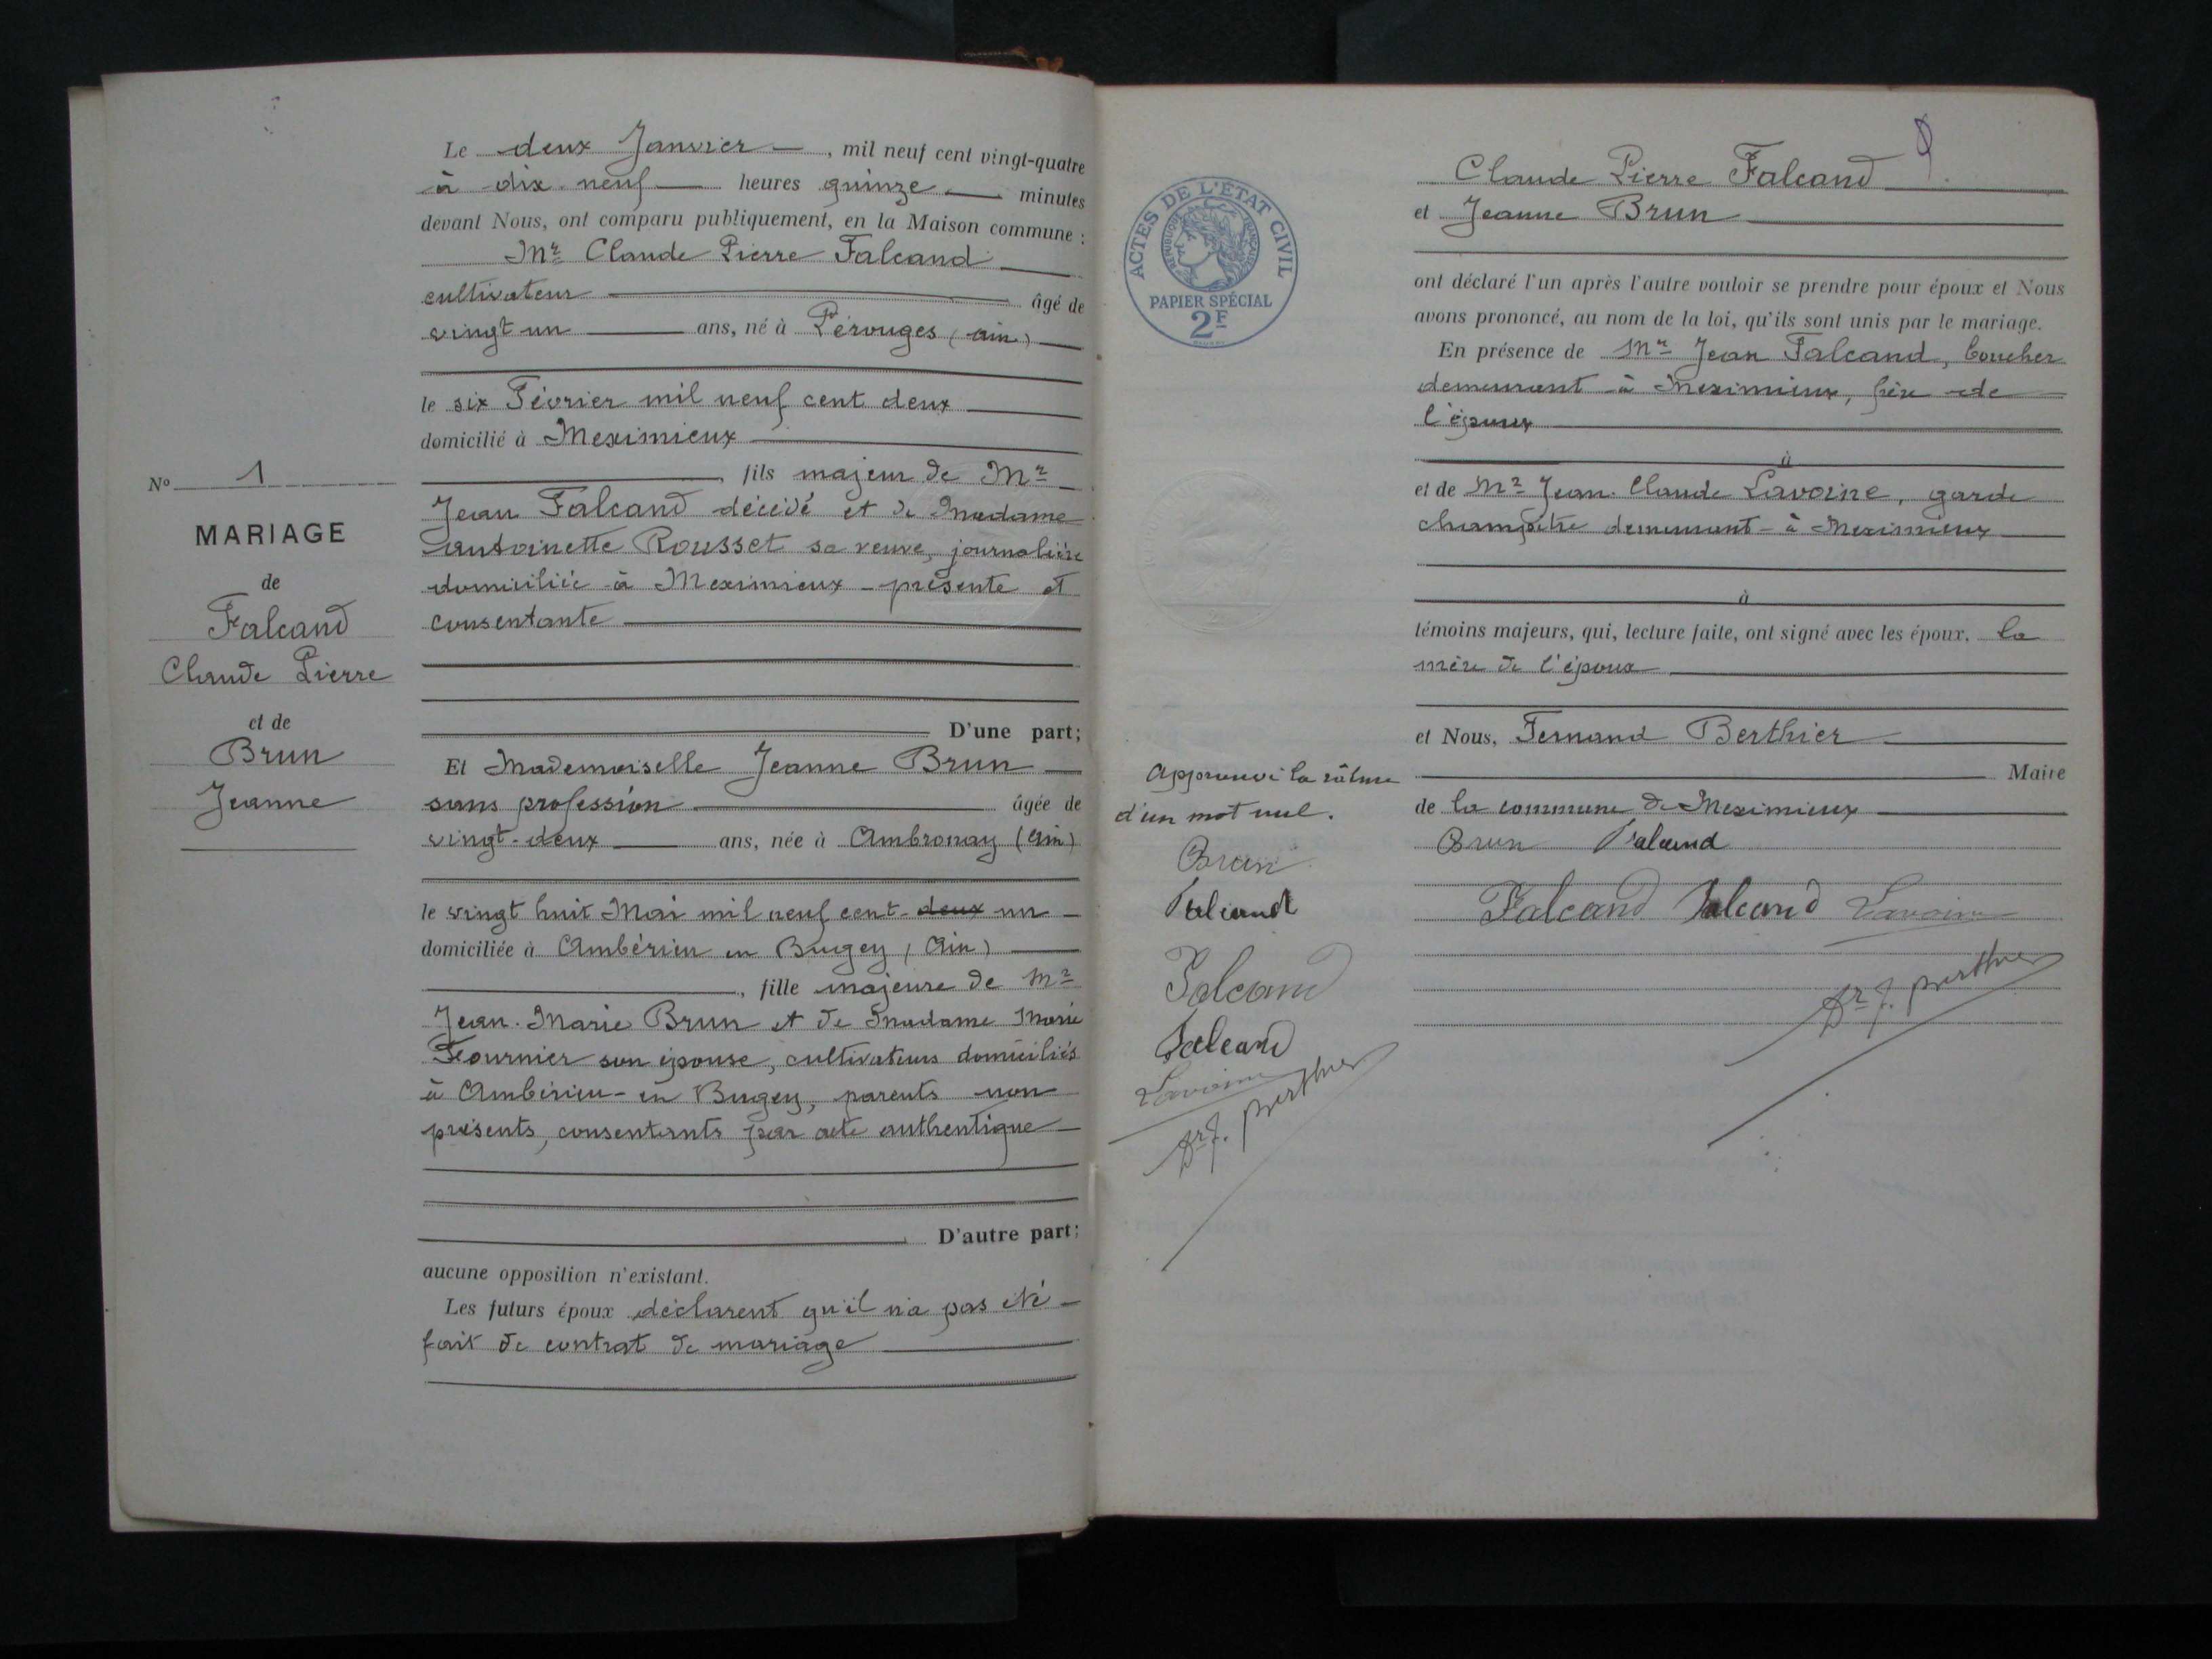 N° 1
MARIAGE
de
Falcand
Claude Pierre
et de
Brun
Jeanne
Le deux Janvier, mil neuf cent vingt-quatre
à dix neuf heures quinze minutes
devant Nous, ont comparu publiquement, en la Maison commune :
Mr Claude Pierre Falcand
cultivateur âgé de
vingt un ans, né à Pérouges (ain)
le six Février mil neuf cent deux
domicilié à Meximieux
, fils majeur de Mr
Jean Falcand décédé et de Madame
Antoinette Rousset sa veuve, journalière
domiciliée à Meximieux - présente et
consentante
D'une part;
Et Mademoiselle Jeanne Brun
sans profession âgée de
vingt-deux ans, née à Ambronay (Ain)
le vingt huit Mai mil neuf cent deux un
domiciliée à Ambérieu en Bugey (Ain)
, fille majeure de Mr
Jean-Marie Brun et de Madame Marie
Fournier son épouse, cultivateurs domiciliés
à Ambérieu-en Bugey, parents non
présents, consentants par acte authentique
D'autre part;
aucune opposition n'existant.
Les futurs époux déclarent qu'il n'a pas été
fait de contrat de mariage
ACTES DE L'ÉTAT CIVIL
RÉPUBLIQUE FRANÇAISE
PAPIER SPÉCIAL
2F
Approuvé la râture
d'un mot nul.
Brun
Falcand
Falcand
Falcand
Lavoine
Dr f. Berthier
Claude Pierre Falcand
et Jeanne Brun
ont déclaré l'un après l'autre vouloir se prendre pour époux et Nous
avons prononcé, au nom de la loi, qu'ils sont unis par le mariage.
En présence de Mr Jean Falcand, boucher
demeurant à Meximieux, frère de
l'époux
à
et de Mr Jean Claude Lavoine, garde
champêtre demeurant à Meximieux
à
témoins majeurs, qui, lecture faite, ont signé avec les époux. la
mère de l'époux
et Nous, Fernand Berthier
Maire
de la commune de Meximieux
Brun Falcand
Falcand Falcand Lavoine
Dr f. Berthier